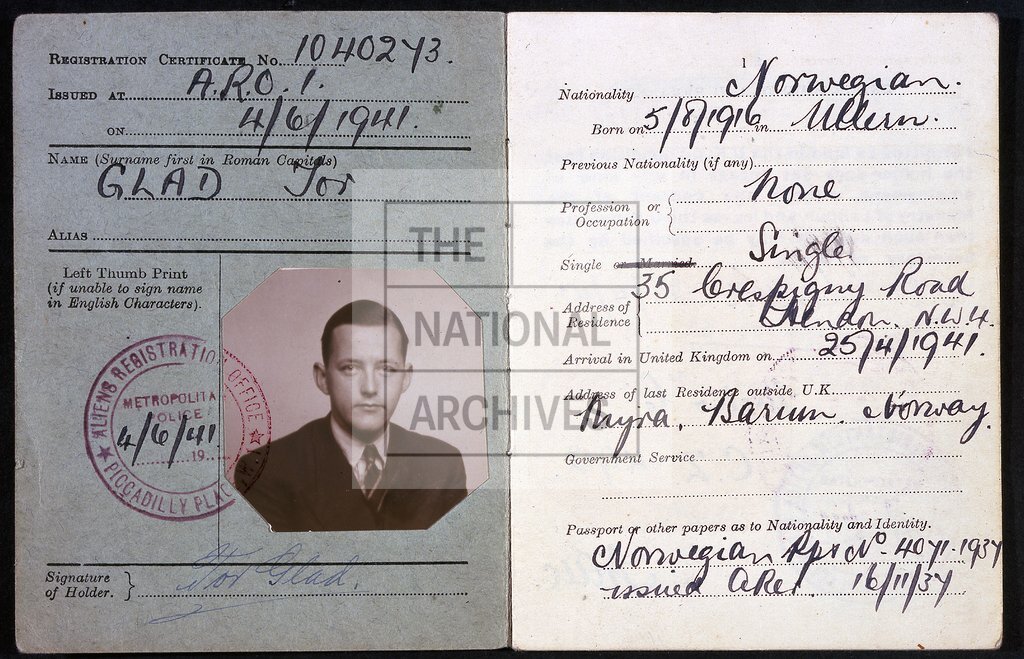 REGISTRATION CERTIFICATE No. 1040273.
ISSUED AT A.R.O. 1.
ON 4/6/1941.
NAME (Surname first in Roman Capitals)
GLAD Tor
ALIAS
Left Thumb Print
(if unable to sign name
in English Characters).
ALIENS REGISTRATION OFFICE
METROPOLITA
POLICE
4/6/41
19
PICCADILLY PLAC
Signature
of Holder.
Tor Glad.
1
Nationality Norwegian.
Born on 5/8/1916 in Ullern.
Previous Nationality (if any)
Profession or
Occupation
None
Single or Married. Single
Address of
Residence
35 Crespigny Road
Hendon, N.W.4.
Arrival in United Kingdom on 25/4/1941.
Address of last Residence outside U.K.
Barum. Norway.
Government Service
Passport or other papers as to Nationality and Identity.
Norwegian Ppt No. 4071-1937
issued Aker 16/11/37
THE
NATIONAL
ARCHIVES